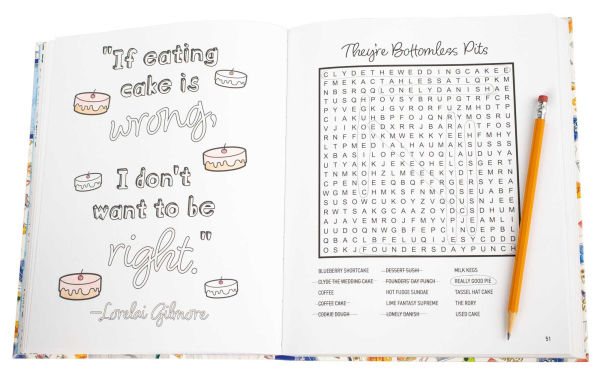 "If eating
cake is
wrong,
I don't
want to be
right."
—Lorelai Gilmore
They're Bottomless Pits
C L Y D E T H E W E D D I N G C A K E E
F M E K A C T A H L E S S A T L Q P K M
N B S R Q Q L O N E L Y D A N I S H A E
T U S Q H P O V S Y B R U P G T R F C R
P Y V E G K J G V R O R F U Z M H D T P
C I A K U H B P F O J Q N R Y M O S R U
V J I K O E D X R R J B A R A I T F O S
R N F F D V K M W E K K Y E E H F M H Y
L T P M E D I A L H A U M A K S U S S S
X B A S I L O P C T V O Q L A U D U Y A
U T Y A K K J E K E O H E L C S G E R T
T N M K O H Z L M E E E K Y D T E M R N
C P E N O E E Q B Q F F R G E R S Y E A
W G M E C H M K S F N M F Q S E U A B F
S U S O W C U K O Y Z V Q O U S N J E E
R W T S A K G C A A Z O Y D C S D H U M
A J A V E M R O J F M Y V P J E A M L I
U U D O Q N W G B F E P C I N D E P B L
Q B A C L B F E L U Q I J E S Y C D D D
O S K J F O U N D E R S D A Y P U N C H
BLUEBERRY SHORTCAKE
CLYDE THE WEDDING CAKE
COFFEE
COFFEE CAKE
COOKIE DOUGH
DESSERT SUSHI
FOUNDERS DAY PUNCH
HOT FUDGE SUNDAE
LIME FANTASY SUPREME
LONELY DANISH
MILK KEGS
REALLY GOOD PIE
TASSEL HAT CAKE
THE RORY
USED CAKE
51